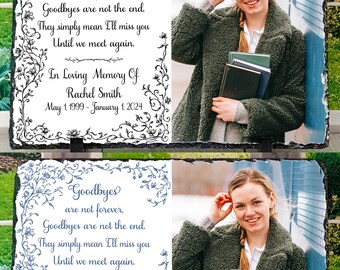 Goodbyes are not the end.
They simply mean I'll miss you
Until we meet again.
In Loving Memory Of
Rachel Smith
May 1, 1999 - January 1, 2024
Goodbyes
are not forever,
Goodbyes are not the end.
They simply mean I'll miss you
Until we meet again.